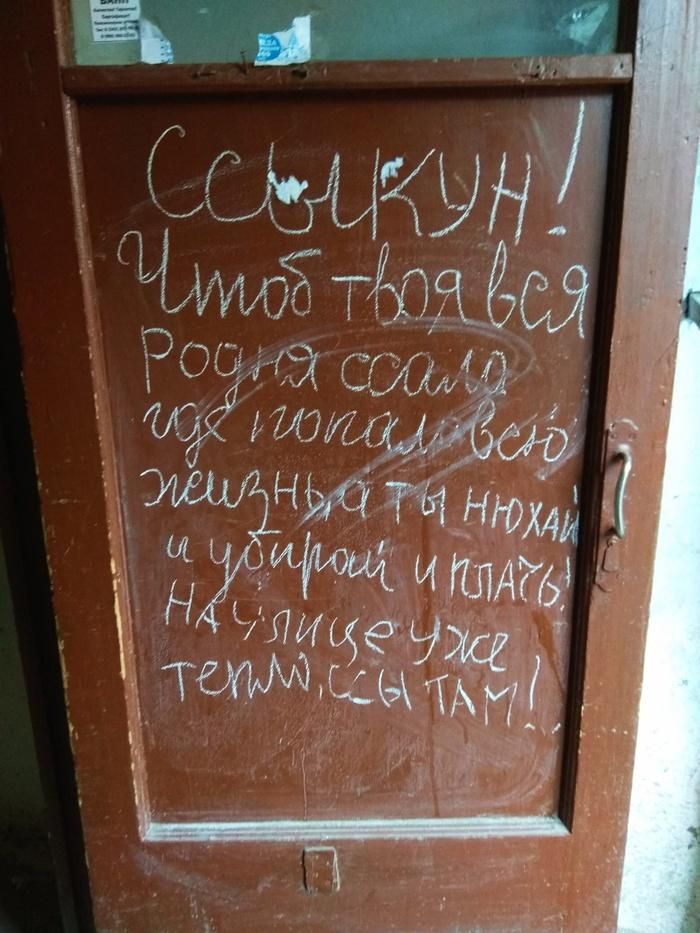 ССЫКУН!
Чтоб твоя вся
Родня ссала
где попало всю
жизнь, а ты нюхай
и убирай и плачь!
На улице уже
тепло, ссы там!..